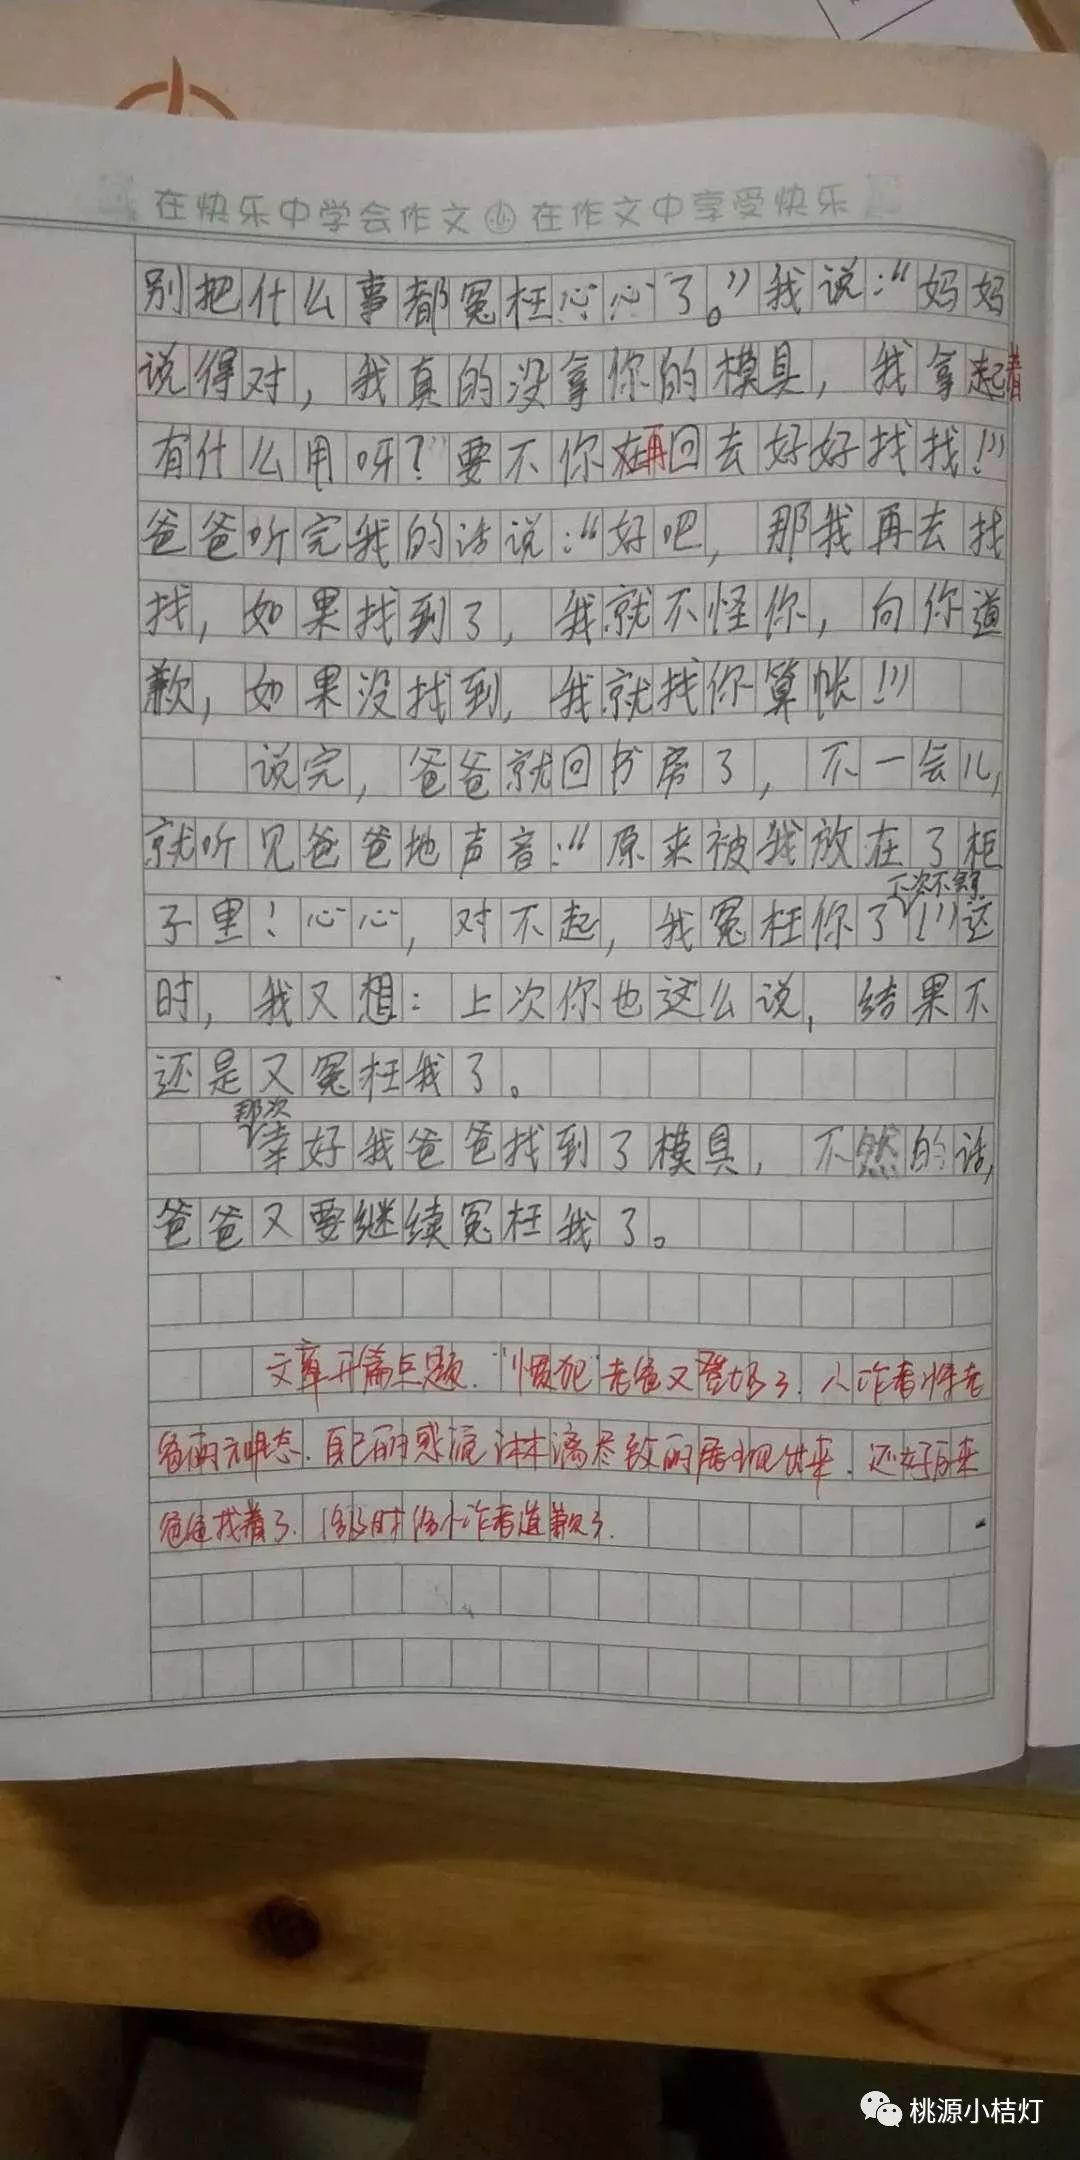 在快乐中学会作文 在作文中享受快乐
别把什么事都冤枉心心了。”我说：“妈妈
说得对，我真的没拿你的模具，我拿起着
有什么用呀？要不你在再回去好好找找！”
爸爸听完我的话说：“好吧，那我再去找
找，如果找到了，我就不怪你，向你道
歉，如果没找到，我就找你算帐！”
说完，爸爸就回书房了，不一会儿，
就听见爸爸地声音：“原来被我放在了柜
下次不会了
子里！心心，对不起，我冤枉你了！”这
时，我又想：上次你也这么说，结果不
还是又冤枉我了。
那次
幸好我爸爸找到了模具，不然的话，
爸爸又要继续冤枉我了。
文章开篇点题.“惯犯”老爸又登场了.小作者将老
爸的神态.自己的感流淋漓尽致的展现出来.还好后来
爸爸找着了.给小作者道歉了.
桃源小桔灯